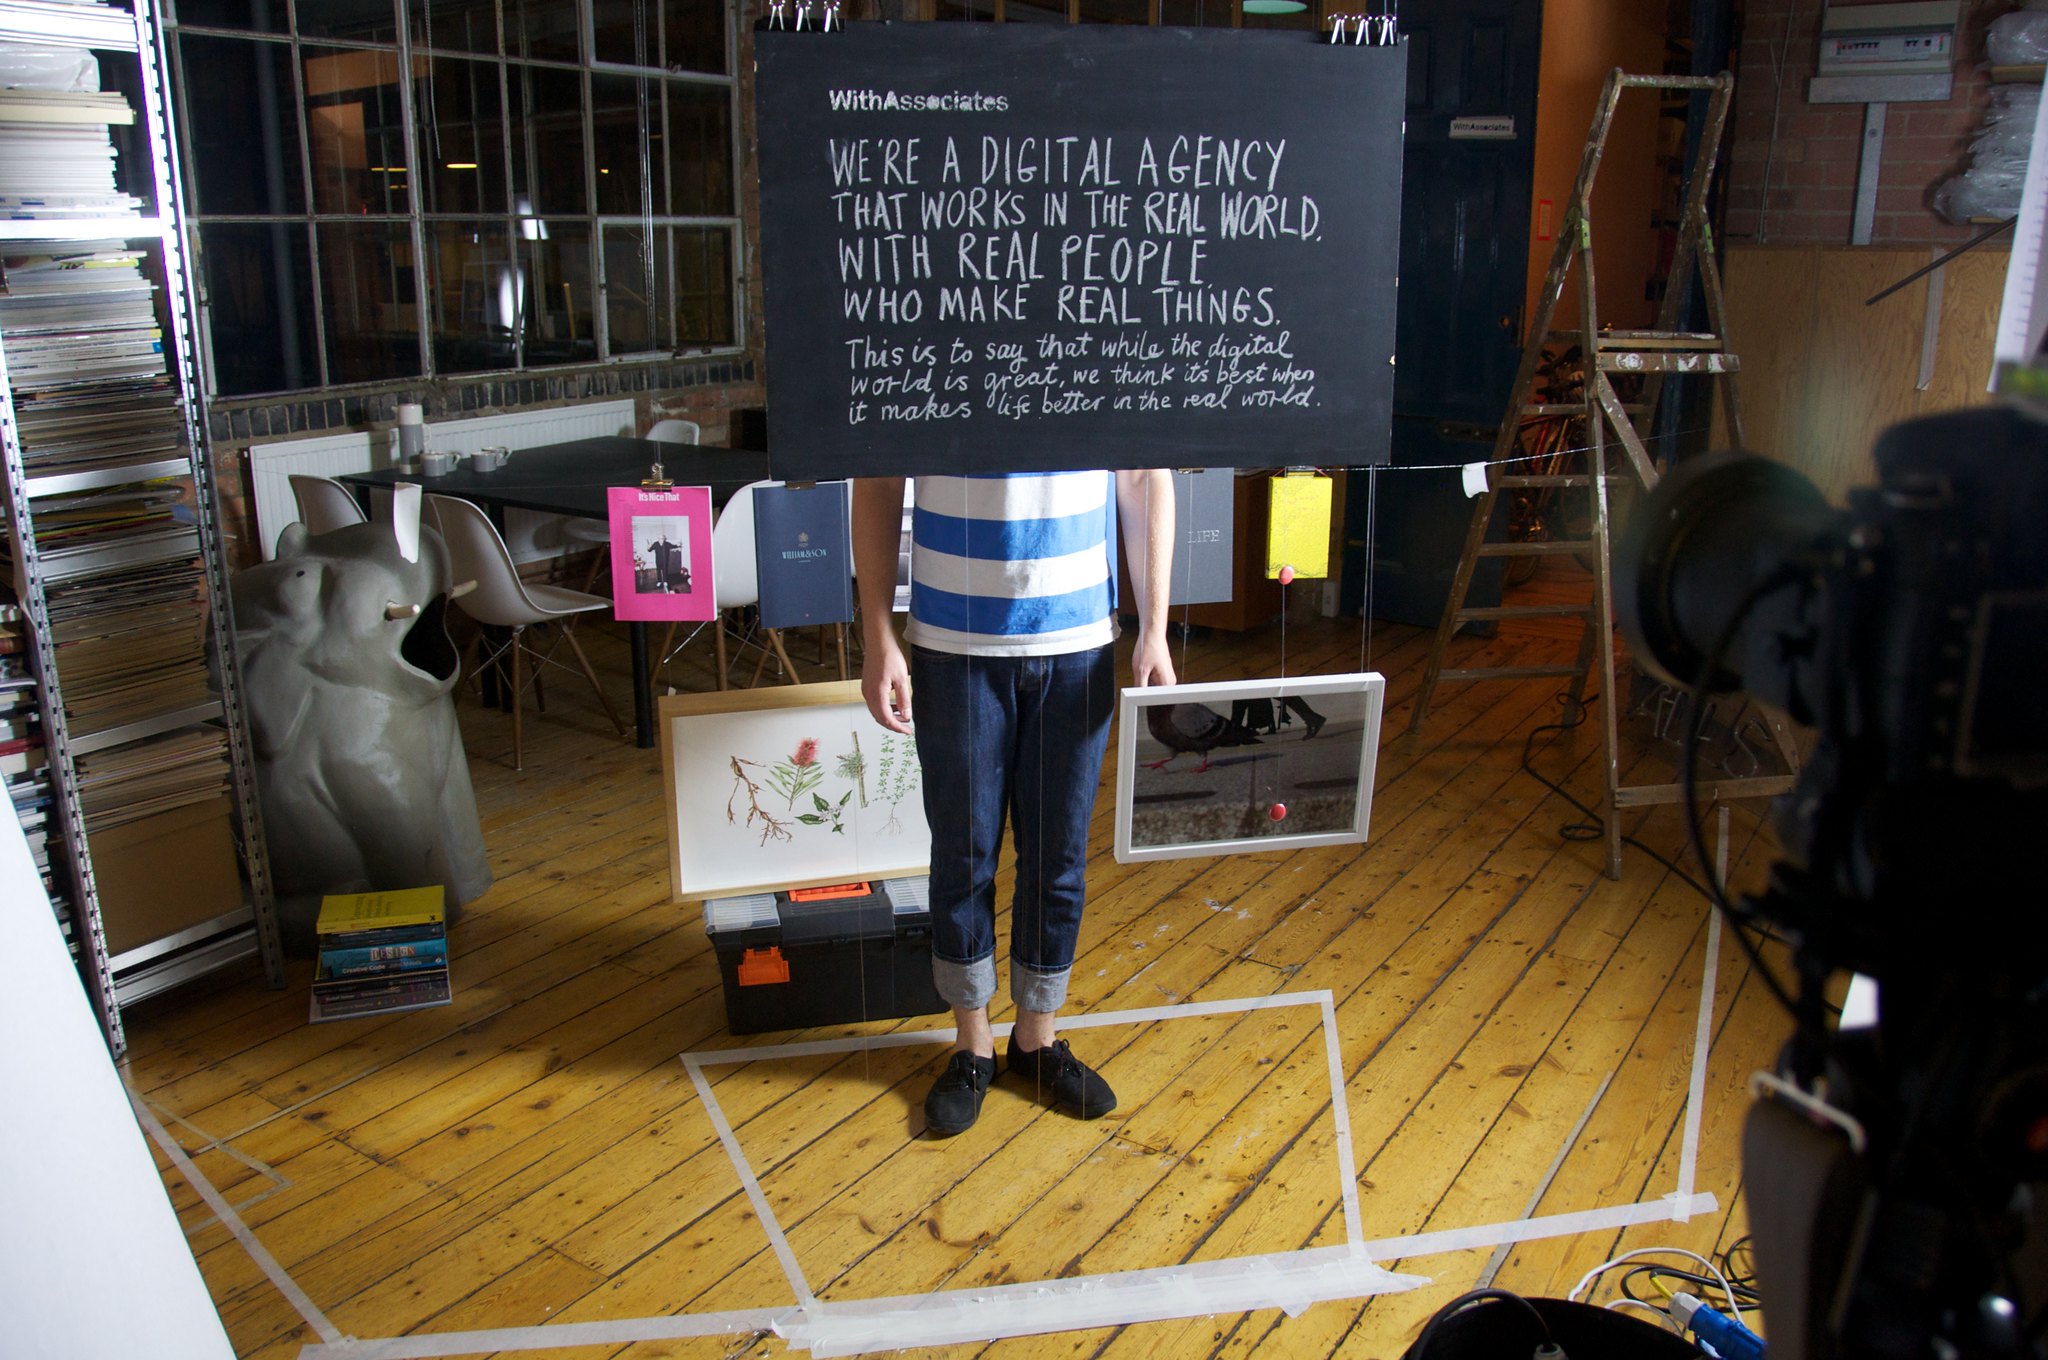 WithAssociates
WE'RE A DIGITAL AGENCY
THAT WORKS IN THE REAL WORLD.
WITH REAL PEOPLE
WHO MAKE REAL THINGS.
This is to say that while the digital
world is great, we think it's best when
it makes life better in the real world.
WithAssociates
It's Nice That
WILLIAM & SON
LIFE
DESIGN
Creative Code